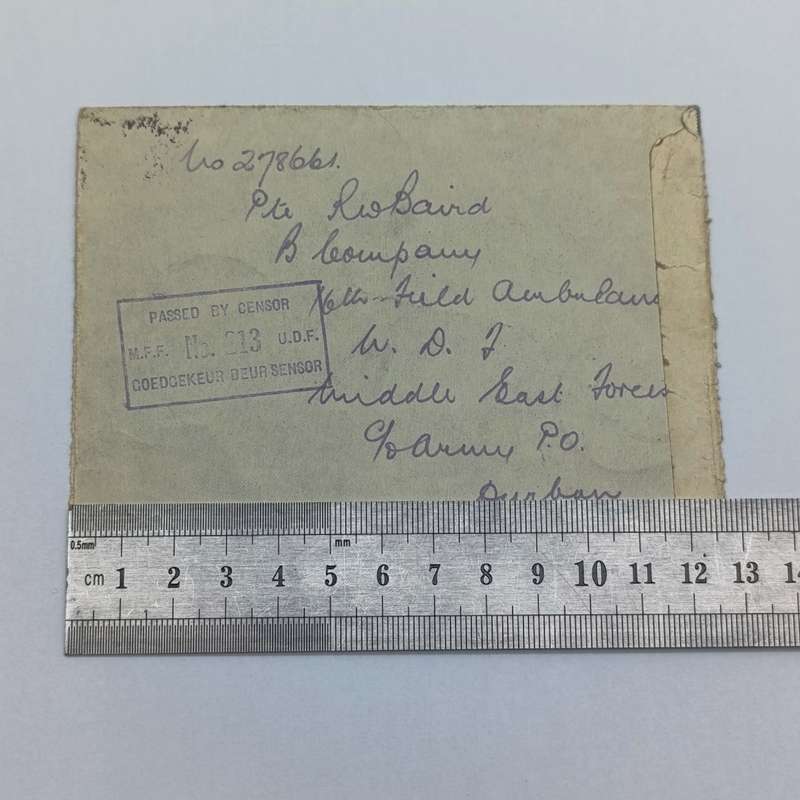 No 278661.
Pte RWBaird
B Company
16th Field Ambulan
U. D. F
Middle East Forces
c/o Army P.O.
Durban
PASSED BY CENSOR
M.F.F. No. 213 U.D.F.
GOEDGEKEUR DEUR SENSOR
0.5mm mm
cm 1 2 3 4 5 6 7 8 9 10 11 12 13 14